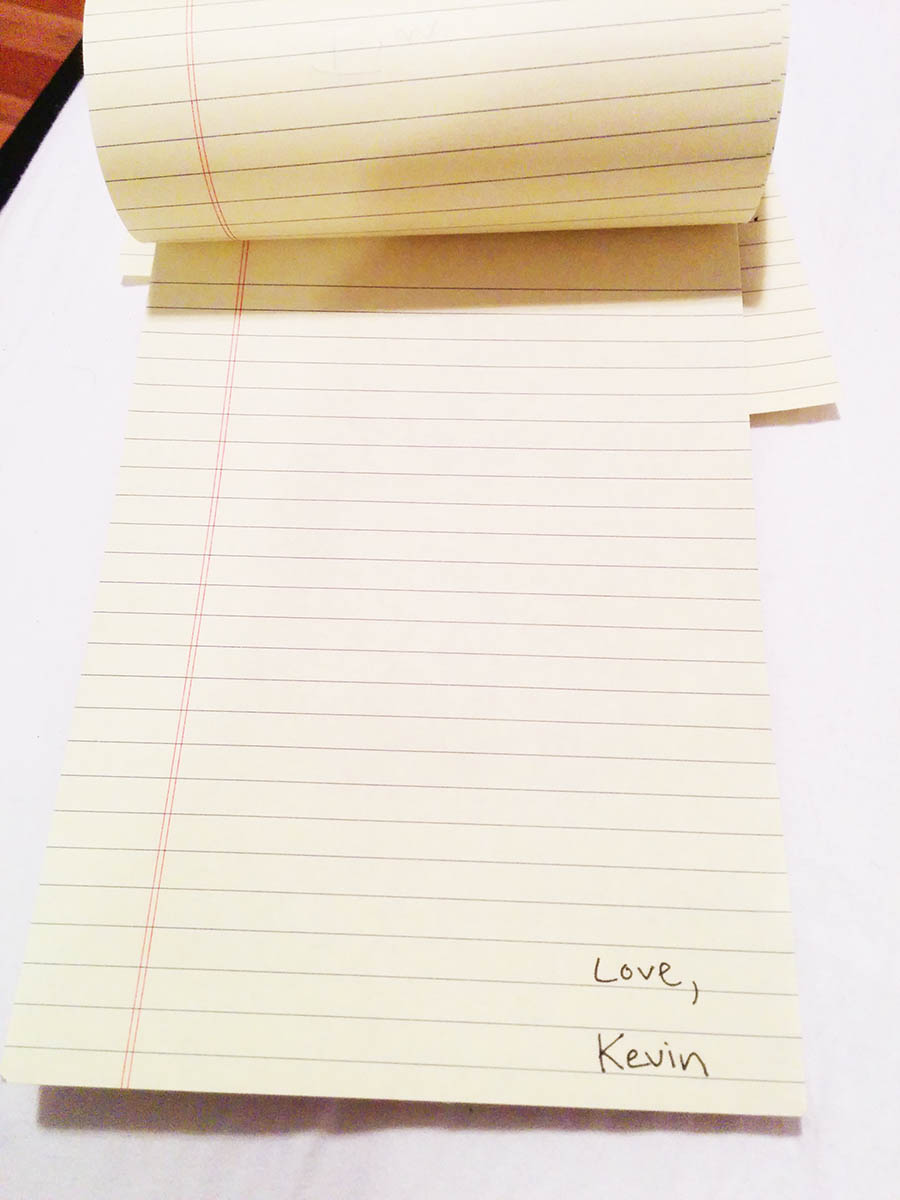 Love,
Kevin